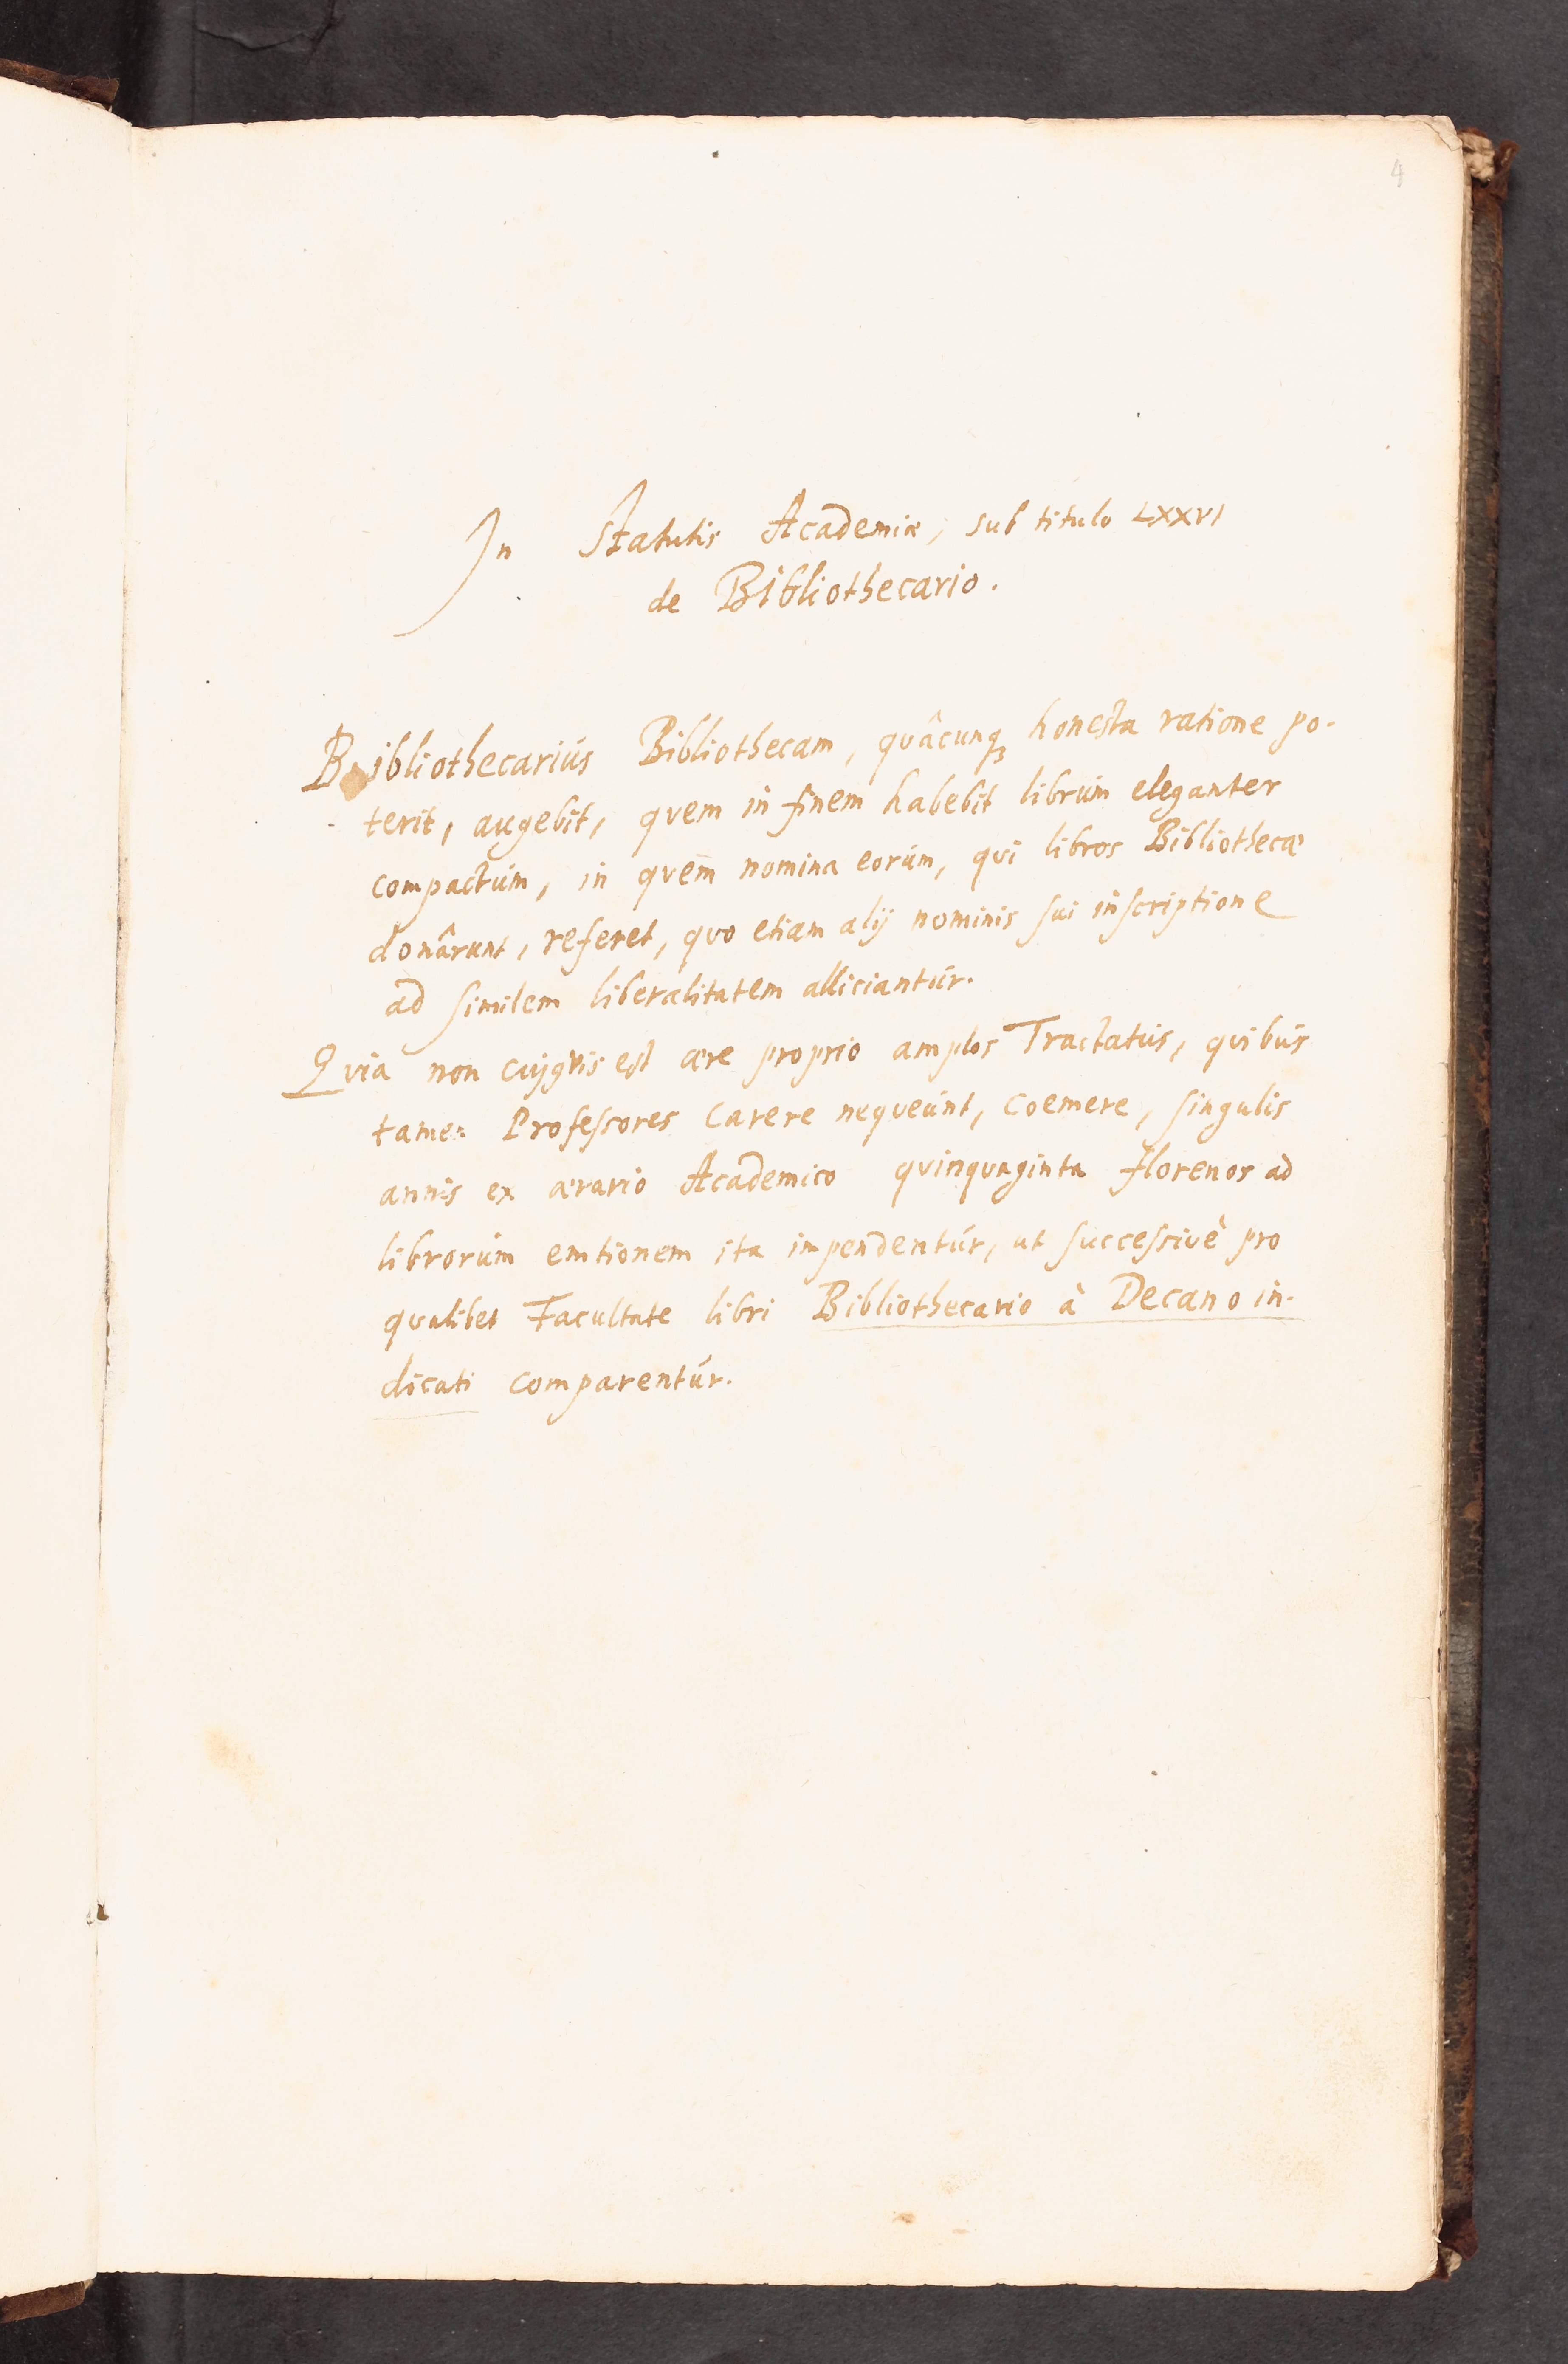 4
In Statutis Academiæ, sub titulo LXXVI
de Bibliothecario.
Bibliothecariús Bibliothecam, qvâcunqꝫ honesta ratione po-
terit, augebit, qvem in finem habebit librúm eleganter
compactúm, in qvem nomina eorúm, qvi libros Bibliothecæ
donârunt, referet, qvo etiam alij nominis sui inscriptione
ad similem liberalitatem alliciantúr.
Qvia non cujqvis est ære proprio amplos Tractatús, qvibús
tamen Professores carere neqveúnt, coemere, singulis
annis ex ærario Academico qvinqvaginta florenos ad
librorúm emtionem ita impendentúr, ut successivè pro
qvalibet Facultate libri Bibliothecario à Decano in-
dicati comparentúr.